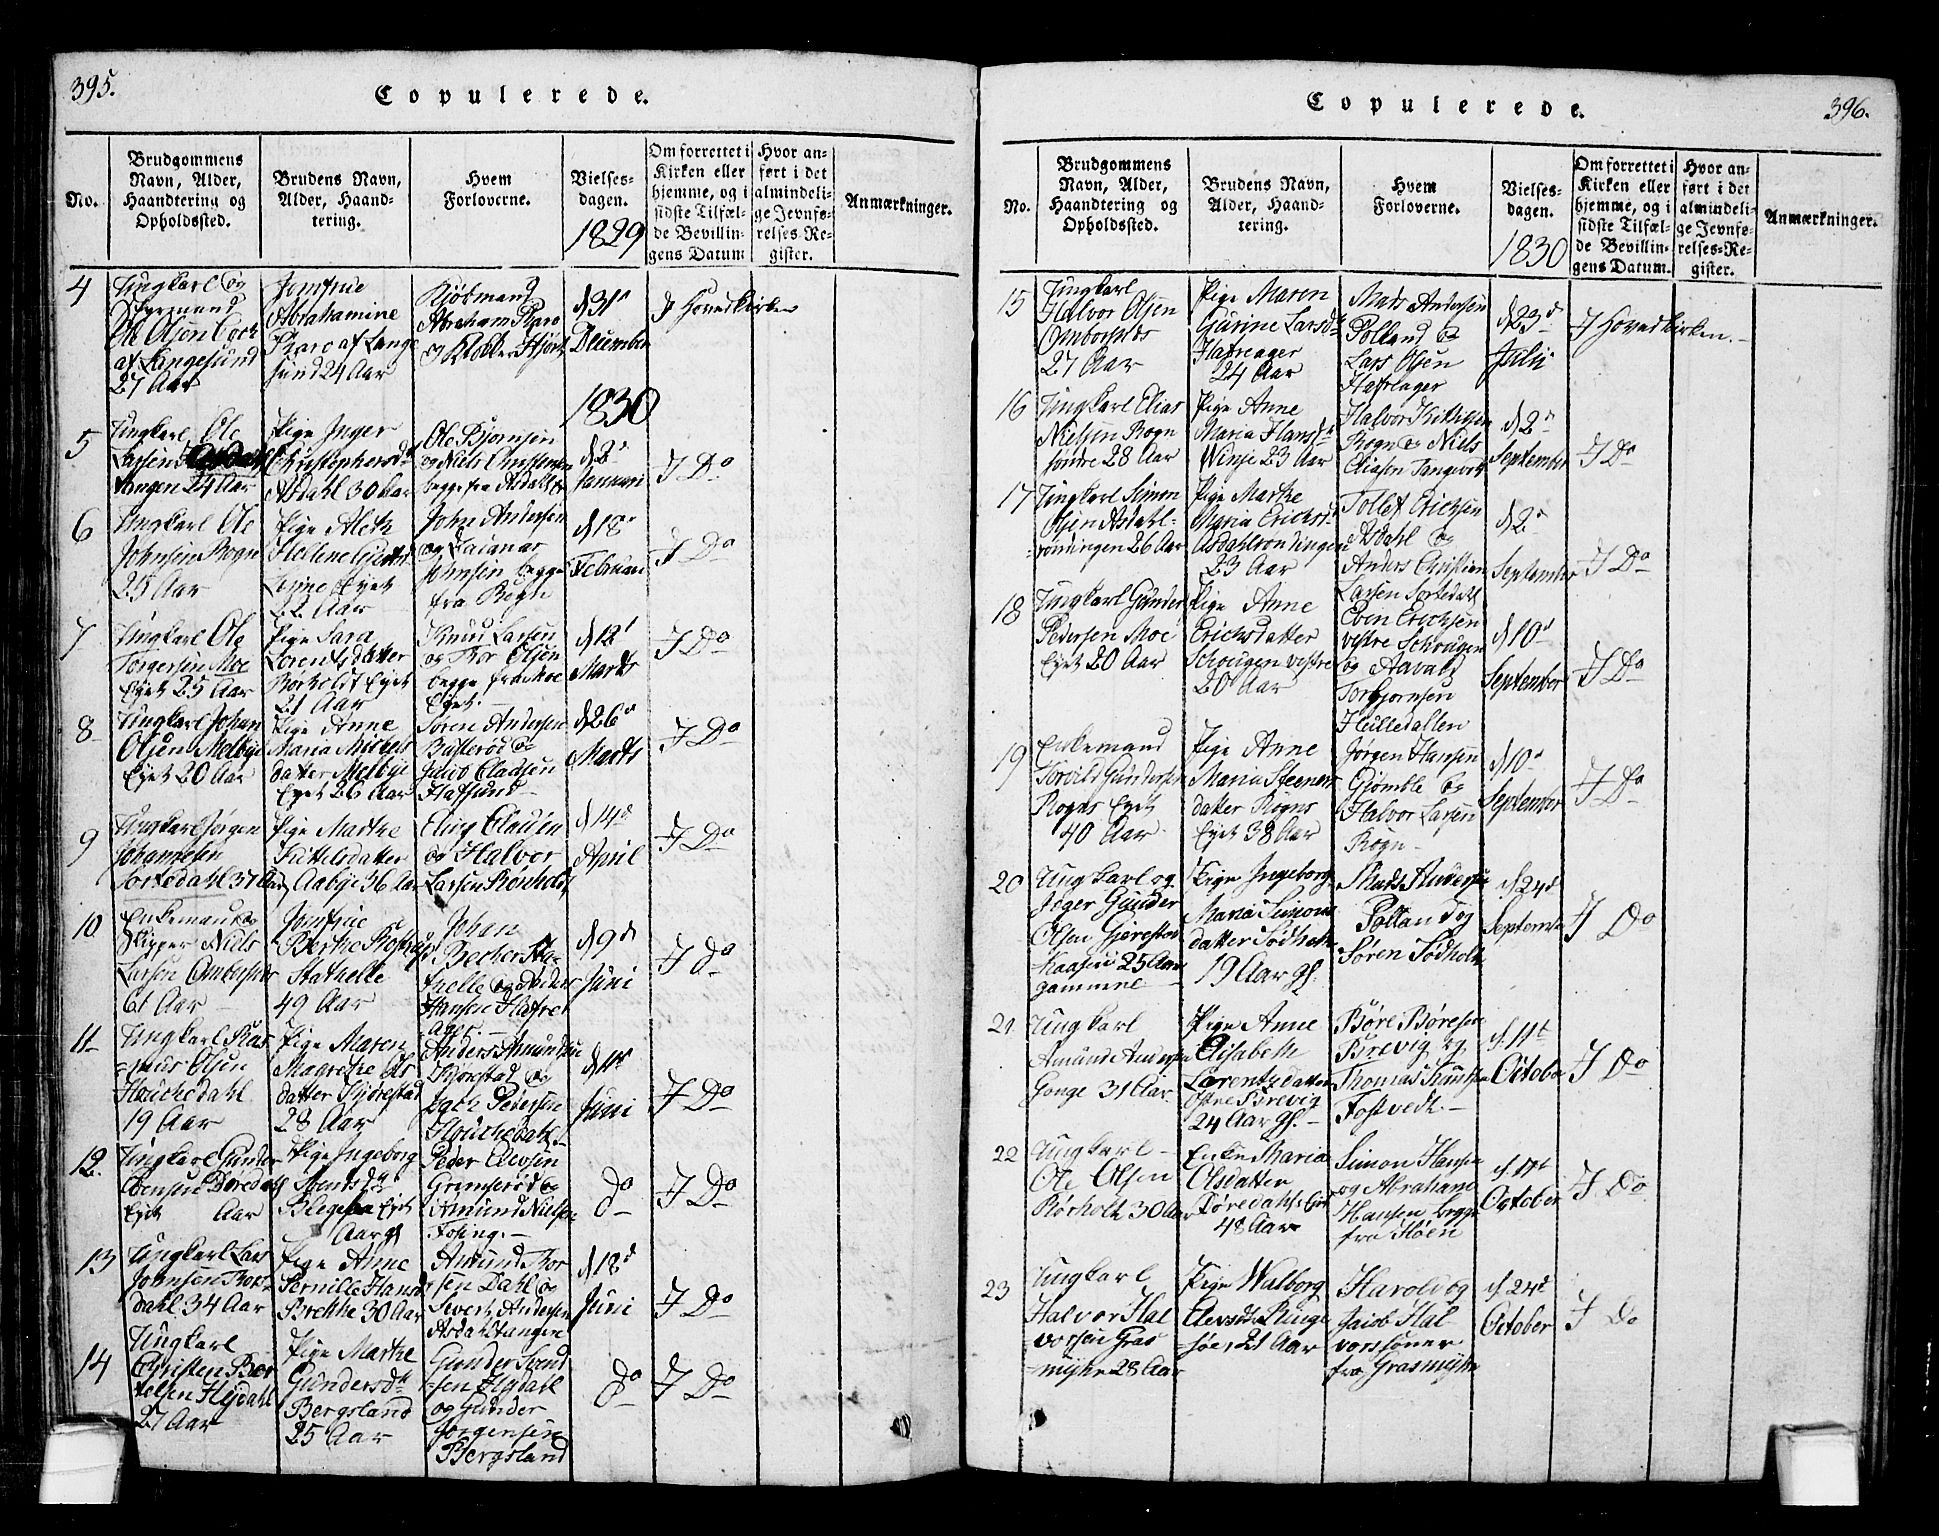 395.
Copulerede.
No.
Brudgommens
Navn, Alder,
Haandtering og
Opholdssted.
Brudens Navn,
Alder, Haand-
tering.
Hvem
Forloverne.
Vielses-
dagen.
1829
Om forrettet i
Kirken eller
hjemme, og i
sidste Tilfæl-
de Bevillin-
gens Datum
Hvor an-
ført i det
almindeli-
ge Jevnfø-
relses-Re-
gister.
Anmærkninger.
4
Ungkarl og
Ole Olsen
af Langesund
27 Aar
Jomfrue
Abrahamine
Pharo af Lange
sund 24 Aar
Kjöbmand
Abraham Pharo
og Klokker Hjort
d 31
December
I Hovedkirken
1830
5
Ungkarl Ole
Larsen
tangen 24 Aar
Pige Inger
Christophersd
Asdahl 30 Aar
Ole Bjørnsen
og Niels Christensen
begge fra Asdahl
d 2
Januari
I Do
6
Ungkarl Ole
Johnsen Rogn
25 Aar
Pige Aleth
Helene
Eyet
22 Aar
John Andersen
og
Johnsen begge
fra Rogn
d 18
Februari
I Do
7
Ungkarl Ole
Torgersen Moe
Eyet 25 Aar
Pige Sara
Lorentsdatter
Rørholdt Eyet
21 Aar
Knud Larsen
og Thor Olsen
begge fra Moe
Eyet.
d 12
Marts
I Do
8
Ungkarl Johan
Olsen Melbye
Eyet 20 Aar
Pige Anne
Maria Michels
datter Melbye
Eyet 26 Aar
Søren Andersen
og
Jacob Eladsen
Hafsund
d 26
Marts
I Do
9
Ungkarl Jørgen
Johannesen
Sortedahl 37 Aar
Pige Marthe
Kittelsdatter
Aabye 36 Aar
Elling
og Halvor
Larsen Rønholdt
d 14
April
I Do
10
Enkemand og
Skipper Niels
Larsen
61 Aar
Jomfrue
Berthe
Stathelle
49 Aar
Johan
Becker Sta-
thelle og
Hansen Hafre
ager.
d 9
Juni
I do
11
Ungkarl Ras
mus Olsen
Houchedahl
19 Aar
Pige Maren
Magrethe Ols
datter Kjørestad
28 Aar
Anders Amundsen
Kjørestad og
Pedersen
Houchedahl
d 11
Juni
I Do
12.
Ungkarl Gunder
Døredahls
Eyet Aar
Pige Ingeborg
Eyet
Aar gl
Peder Elevsen
Grimserød og
Amund Nielsen
Fosing.
do
I Do
13
Ungkarl Lars
Johnsen
dahl 34 Aar
Pige Anne
Pernille Hansd
Brekke 30 Aar
Amund Tor
sen Dahl og
Sivert Andersen
Asdahlstangen
d 18
Juni
I Do
14
Ungkarl
Christen Ber
telsen Flydahl
27 Aar
Pige Marthe
Gundersd
Bergsland
25 Aar
Gunder
sen Flydahl
og Gunder
Jørgensen
Bergsland
do
I Do
396.
Copulerede.
No.
Brudgommens
Navn, Alder,
Haandtering og
Opholdssted.
Brudens Navn,
Alder, Haand-
tering.
Hvem
Forloverne.
Vielses-
dagen.
1830
Om forrettet i
Kirken eller
hjemme, og i
sidste Tilfæl-
de Bevillin-
gens Datum.
Hvor an-
ført i det
almindeli-
ge Jevnfø-
relses-Re-
gister.
Anmærkninger.
15
Ungkarl
Halvor Olsen
Omborsnæs
27 Aar
Pige Maren
Gurine Larsd
Hafreager
24 Aar
Mads Andersen
Polland og
Lars Olsen
Hafreager
d 23
Julii
I Hovedkirken.
16
Ungkarl Elias
Nielsen Rogn
søndre 28 Aar
Pige Anne
Maria Hansd
Winje 23 Aar
Halvor Kittilsen
Rogn og Niels
Eliasen Tangvald
d 2
September
I Do
17
Ungkarl Simon
Olsen Asdahl-
vondingen 26 Aar
Pige Marthe
Maria Ericksd
Asdahlvondingen
23 Aar
Tollef Erichsen
Asdahl og
Anders Christian
Larsen Sortedahl
d 2
September
I Do
18
Ungkarl Gunder
Pedersen Moe
Eyet 20 Aar
Pige Anne
Erichsdatter
Schougen vestre
20 Aar
Even Erichsen
vestre Schougen
og Aavald
Torbjørnsen
Helledallen
d 10
September
I Do
19
Enkemand
Torvild Gundersen
Rogns Eyet
40 Aar
Pige Anne
Maria Steener
datter Rogns
Eyet 38 Aar
Jørgen Hansen
Gjømble og
Halvor Larsen
Rogn
d 10
September
I Do
20
Ungkarl og
Jæger Gunder
Olsen Gjerestad
25 Aar
gammel
Pige Ingeborg
Maria Simons
datter Sødholt
19 Aar gl.
Mads Andersen
Polland og
Søren Sødholt
d. 24d
September
I Do
21
Ungkarl
Amund Andersen
Gonge 31 Aar
Pige Anne
Elisabeth
Lorentzdatter
østre Brevig
24 Aar gl.
Børe Børesen
Brevig og
Thomas Knudsen
Fostvedt.
d. 11t
October
I Do
22
Ungkarl
Ole Olsen
Rørholt 30 Aar
Enke Maria
Olsdatter
Døredahls Eyet
48 Aar
Simon Hansen
og Abraham
Hansen begge
fra Høen
d. 17t
October
I Do
23
Ungkarl
Halvor Hal
vorsen Gras
myhr 28 Aar
Pige Walborg
Elevsd. Ringe
søe, 21 Aar
Harold og
Jacob Hal
vorssønner
fra Grasmyhr
d. 24d
October
I Do